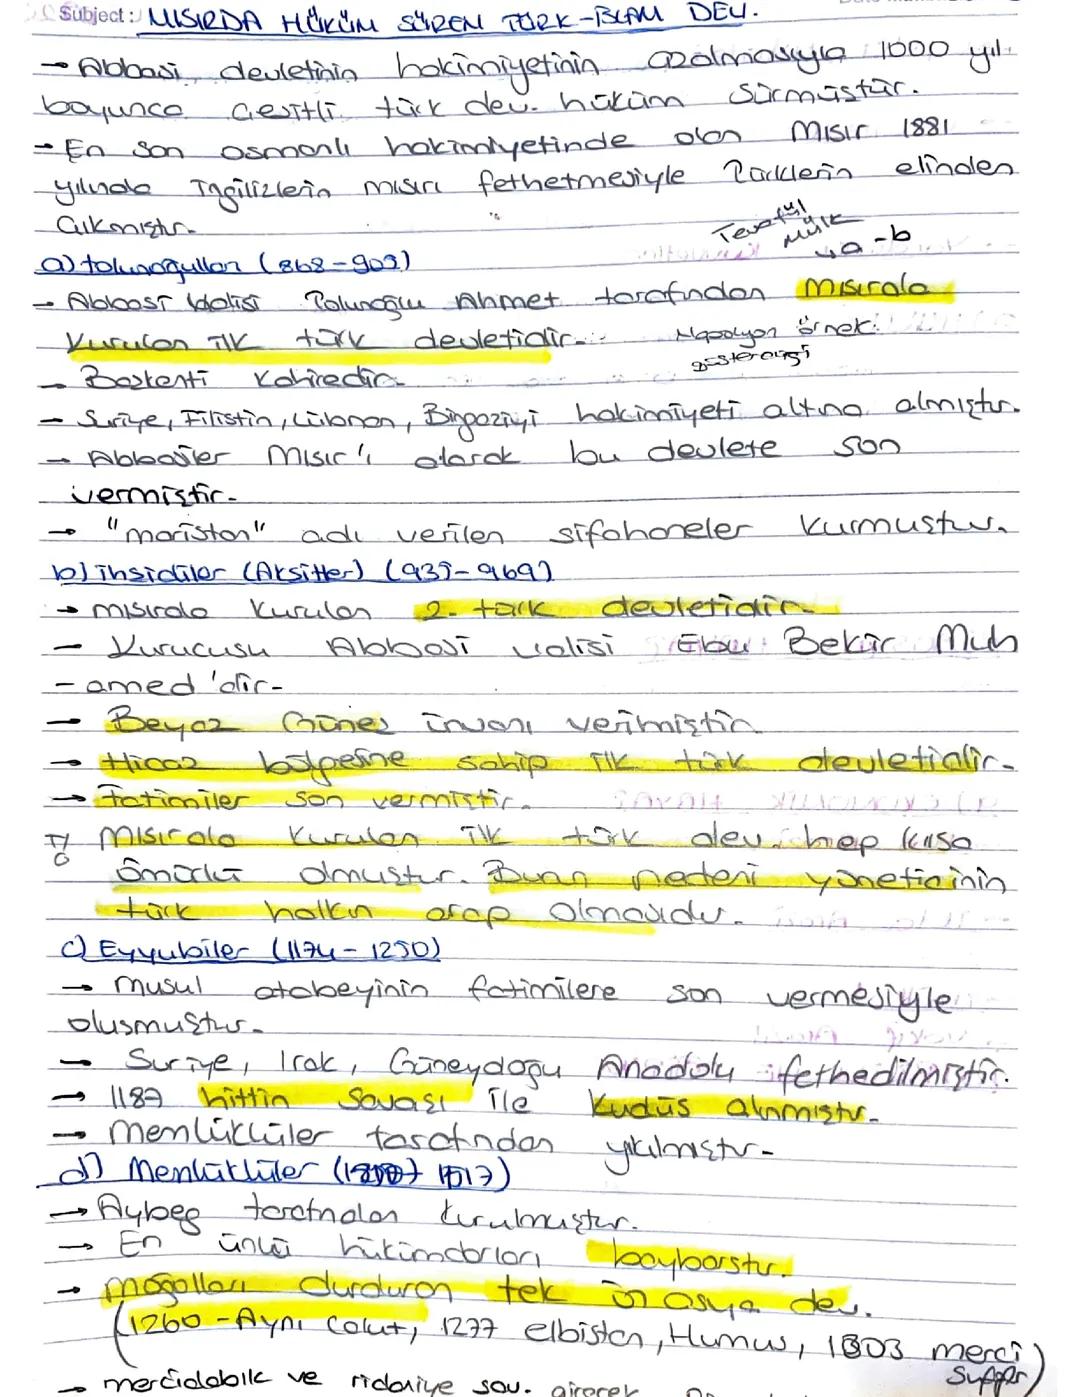 Subject: MISIRDA HÜKÜM SÜREN TÜRK-İSLAM DEV.
→ Abbasi devletinin hakimiyetinin azalmasıyla 1000 yıl
boyunca çeşitli türk dev. hüküm sürmüştür.
→ En son osmanlı hakimiyetinde olan Mısır 1881
yılında İngilizlerin mısırı fethetmesiyle Türklerin elinden
çıkmıştır.
Tevaifül
Mülk
↳ a-b
a) tolunoğulları (868-905)
→ Abbasi Valisi Tolunoğlu Ahmet tarafından Mısırda
kurulan ilk türk devletidir.
Napolyon örnek
gösterdiği
→ Başkenti Kahiredir.
→ Suriye, Filistin, Lübnan, Bingaziyi hakimiyeti altına almıştır.
→ Abbasiler Mısır'ı alarak bu devlete son
vermiştir.
→ "mariston" adı verilen şifahaneler kurmuştur.
b) ihşidiler (Akşitler) (935-969)
→ mısırda kurulan 2. türk devletidir.
→ Kurucusu Abbasi valisi Ebu Bekir Muh
-amed'dir-
→ Beyaz Güneş ünvanı verilmiştir.
→ Hicaz bölgesine sahip ilk türk devletidir.
→ fatimiler son vermiştir.
Mısırda kurulan ilk türk dev. hep kısa
ömürlü olmuştur. Bunun nedeni yöneticinin
türk halkın arap olmasıdır.
c) Eyyubiler (1174-1250)
→ musul atabeyinin fatimilere son vermesiyle
oluşmuştur.
→ Suriye, Irak, Güneydoğu Anadolu fethedilmiştir.
→ 1187 hittin Savaşı ile Kudüs alınmıştır.
→ memlüklüler tarafından yıkılmıştır-
d) Memlüklüler (1250-1517)
→ Aybeg tarafından kurulmuştur.
→ En ünlü hükümdarları baybarstır.
→ mogolları durduran tek ön asya dev.
(1260 -Ayni Calut, 1277 elbistan, Humus, 1303 merci
Suffer)
→ mercidabık ve ridaniye sav. girerek